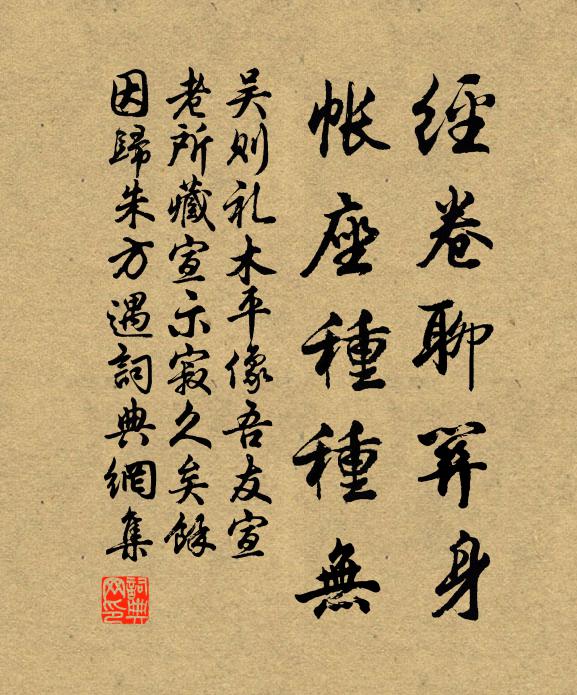 經卷聊算身
帳座種種無
吴則礼木平像吾友宣
老所藏宣示寂久矣餘
因歸朱方遇詞典網集
詞典网印